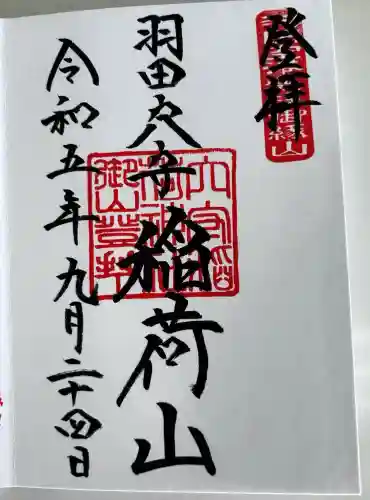 登拝
羽田穴守稲荷山
穴守稲
荷神社
御山登拝
令和五年九月二十四日